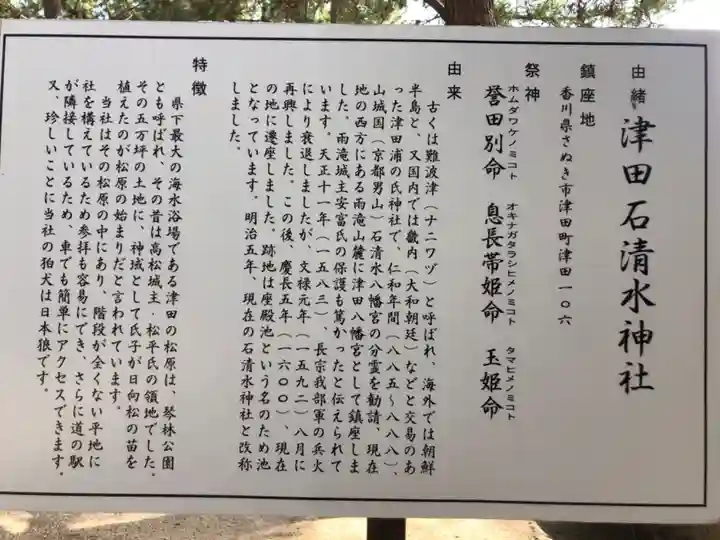 由緒 津田石清水神社
鎮座地
香川県さぬき市津田町津田一〇六
祭神
誉田別命 ホムダワケノミコト 息長帯姫命 オキナガタラシヒメノミコト 玉姫命 タマヒメノミコト
由来
古くは難波津（ナニワヅ）と呼ばれ、海外では朝鮮
半島と、又国内では畿内（大和朝廷）などと交易のあ
った津田浦の氏神社で、仁和年間（八八五～八八八）、
山城国（京都男山）石清水八幡宮の分霊を勧請、現在
地の西方にある雨滝山麓に津田八幡宮として鎮座しま
した。雨滝城主安富氏の保護も篤かったと伝えられて
います。天正十一年（一五八三）、長宗我部軍の兵火
により衰退しましたが、文禄元年（一五九二）八月に
再興しました。この後、慶長五年（一六〇〇）、現在
の地に遷座しました。跡地は座殿池という名のため池
となっています。明治五年、現在の石清水神社と改称
しました。
特徴
県下最大の海水浴場である津田の松原は、琴林公園
とも呼ばれ、その昔は高松城主・松平氏の領地でした。
その五万坪の土地に、神域として氏子が日向松の苗を
植えたのが松原の始まりだと言われています。
当社はその松原の中にあり、階段が全くない平地に
社を構えているため参拝も容易にでき、さらに道の駅
が隣接しているため、車でも簡単にアクセスできます。
又、珍しいことに当社の狛犬は日本狼です。